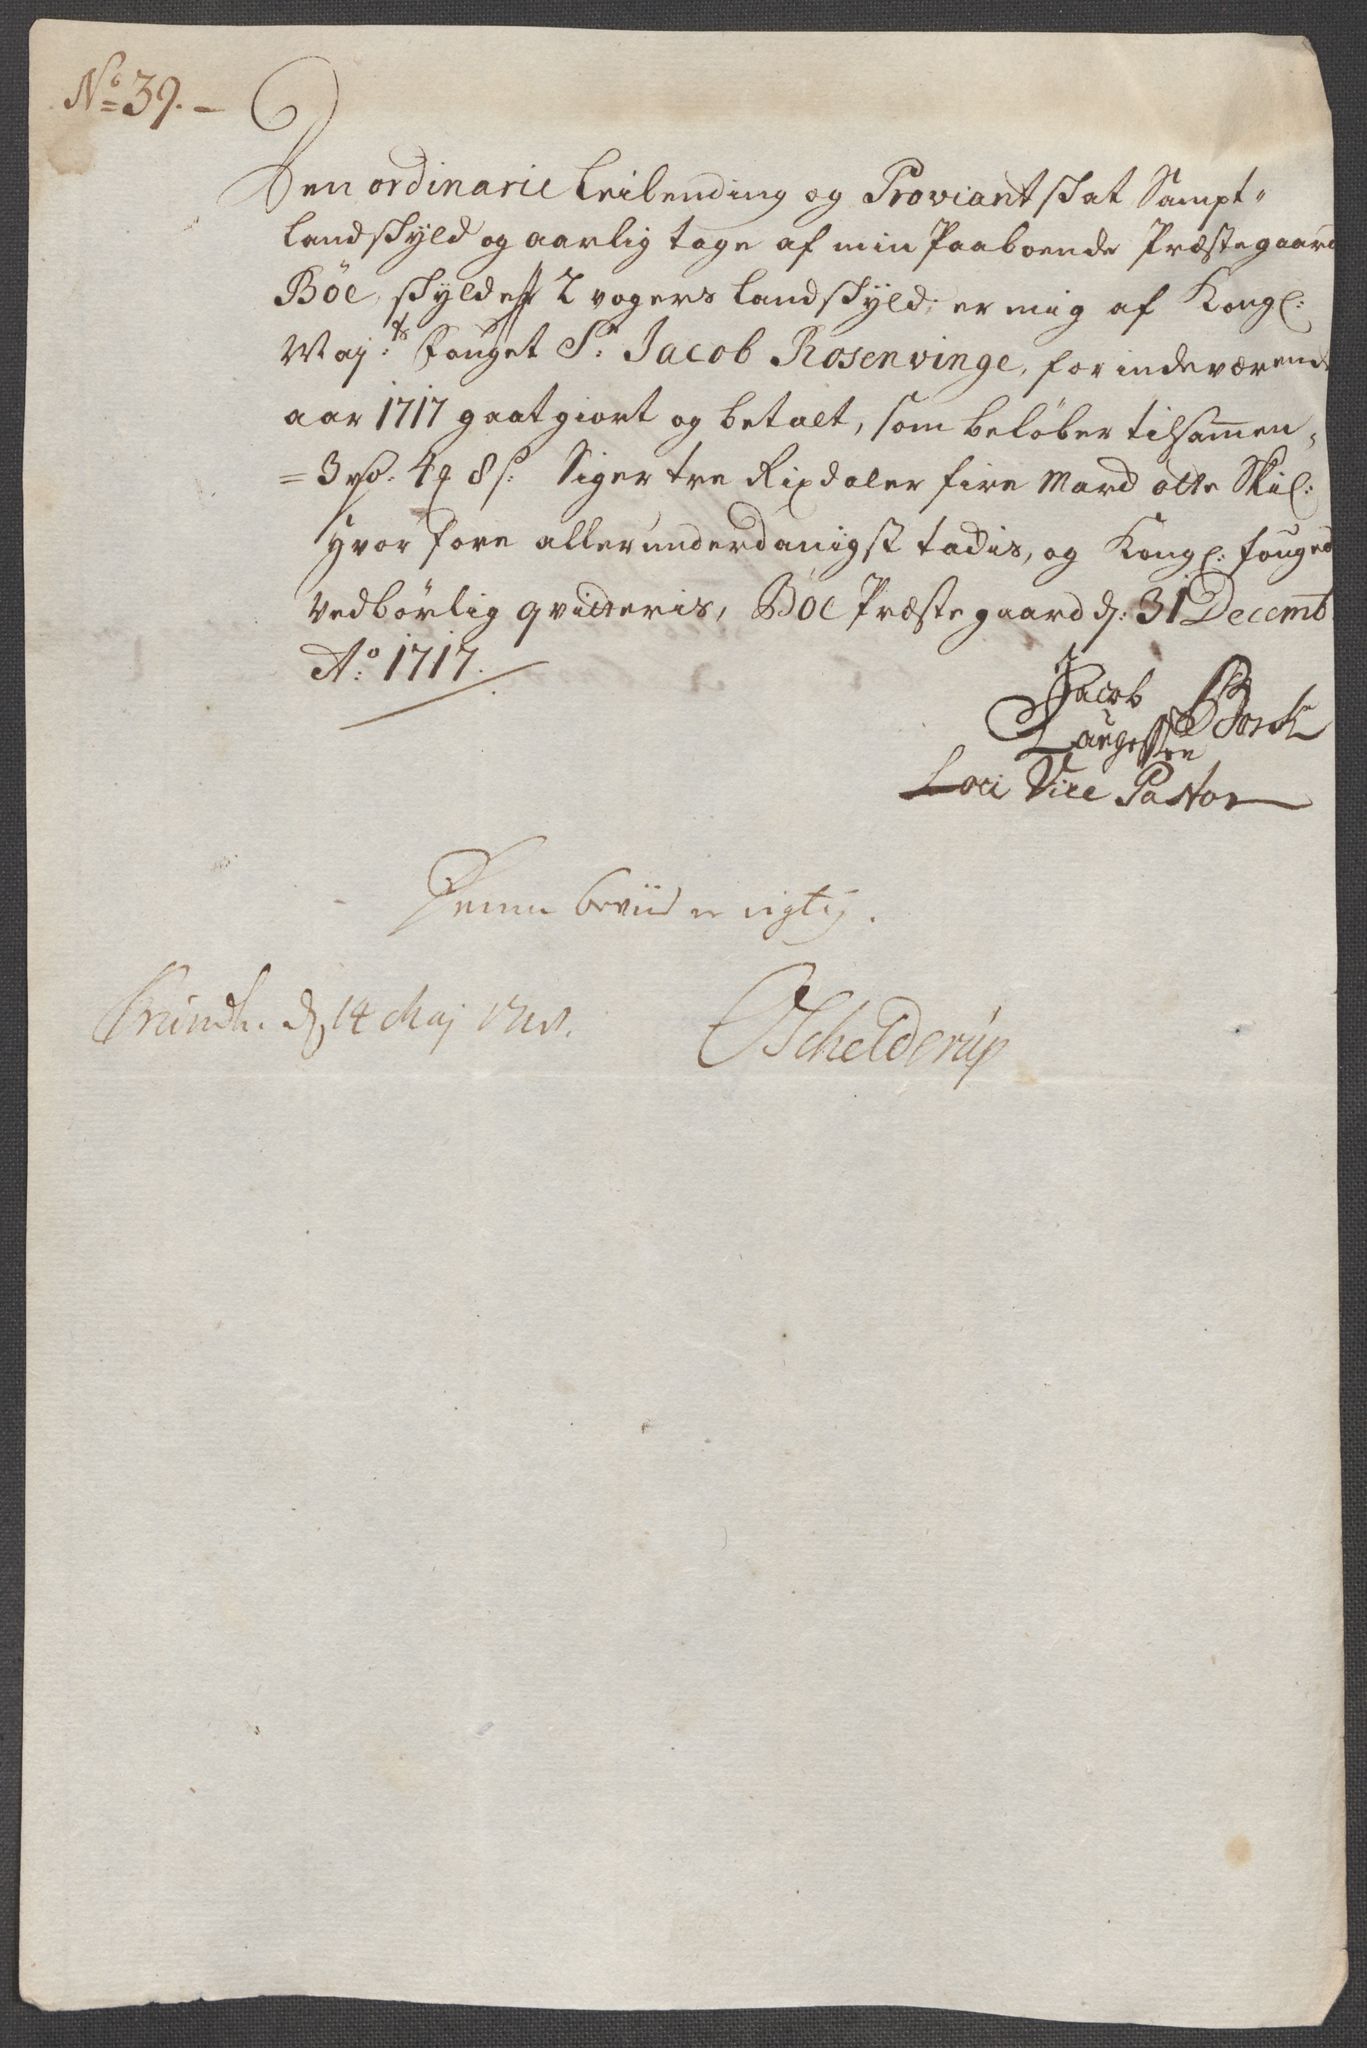 No 39.
Den ordinarie Leilending og Proviant skat Sampt
Landskyld og aarlig tage af min Paaboende Præstegaard
Böe, skylder 2 vogers Landskyld, er mig af Kongl:
May:ts Fouget Sr. Jacob Rosenvinge, for indeværende
aar 1717 gaatgiort og betalt, som belöber tilsamen,
= 3 rd. 4 8 s: Siger tre Rixdaler fire Marck otte Skil:
Hvor fore allerunderdanigst tackis, og Kongl: fouged
vedbörlig qvitteris, Böe Præstegaard d: 31 Decemb.
Ao: 1717.
Jacob
Laugessen Borch
Loci Vice Pastor
Denne beviis er rigtig.
Trundh. d 14 Maj
OSchelderup